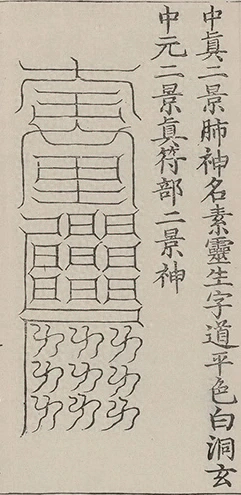 中真二景肺神名素靈生字道平色白洞玄
中元二景真符部二景神